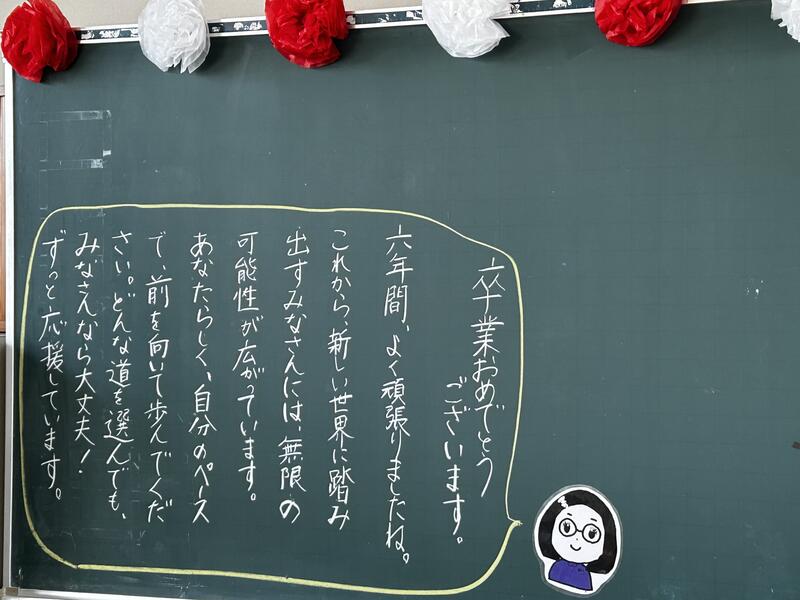 卒業おめでとう
ございます。
六年間、よく頑張りましたね。
これから、新しい世界に踏み
出すみなさんには、無限の
可能性が広がっています。
あなたらしく、自分のペース
で、前を向いて歩んでくだ
さい。どんな道を選んでも、
みなさんなら大丈夫！
ずっと応援しています。